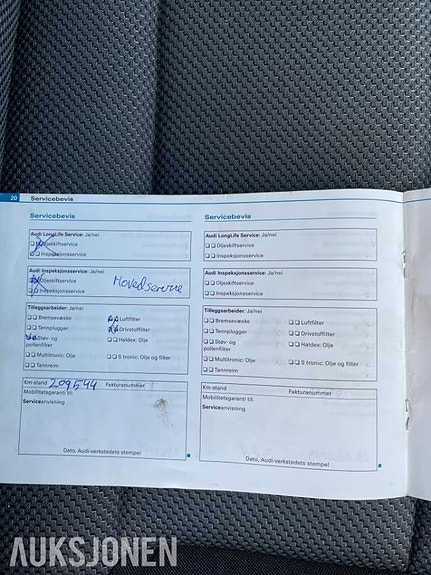 20 Servicebevis
Servicebevis
Audi LongLife Service: Ja/nei
Oljeskiftservice
Inspeksjonsservice
Audi Inspeksjonsservice: Ja/nei
Oljeskiftservice
Inspeksjonsservice
Hovedservice
Tilleggsarbeider: Ja/nei
Bremsevæske Luftfilter
Tennplugger Drivstoffilter
Støv- og Haldex: Olje
pollenfilter
Multitronic: Olje S tronic: Olje og filter
Tannreim
Km-stand 209544 Fakturanummer
Mobilitetsgaranti til:
Serviceanvisning
Dato, Audi-verkstedets stempel
Servicebevis
Servicebevis
Audi LongLife Service: Ja/nei
Oljeskiftservice
Inspeksjonsservice
Audi Inspeksjonsservice: Ja/nei
Oljeskiftservice
Inspeksjonsservice
Tilleggsarbeider: Ja/nei
Bremsevæske Luftfilter
Tennplugger Drivstoffilter
Støv- og Haldex: Olje
pollenfilter
Multitronic: Olje S tronic: Olje og filter
Tannreim
Km-stand Fakturanummer
Mobilitetsgaranti til:
Serviceanvisning
Dato, Audi-verkstedets stempel
AUKSJONEN